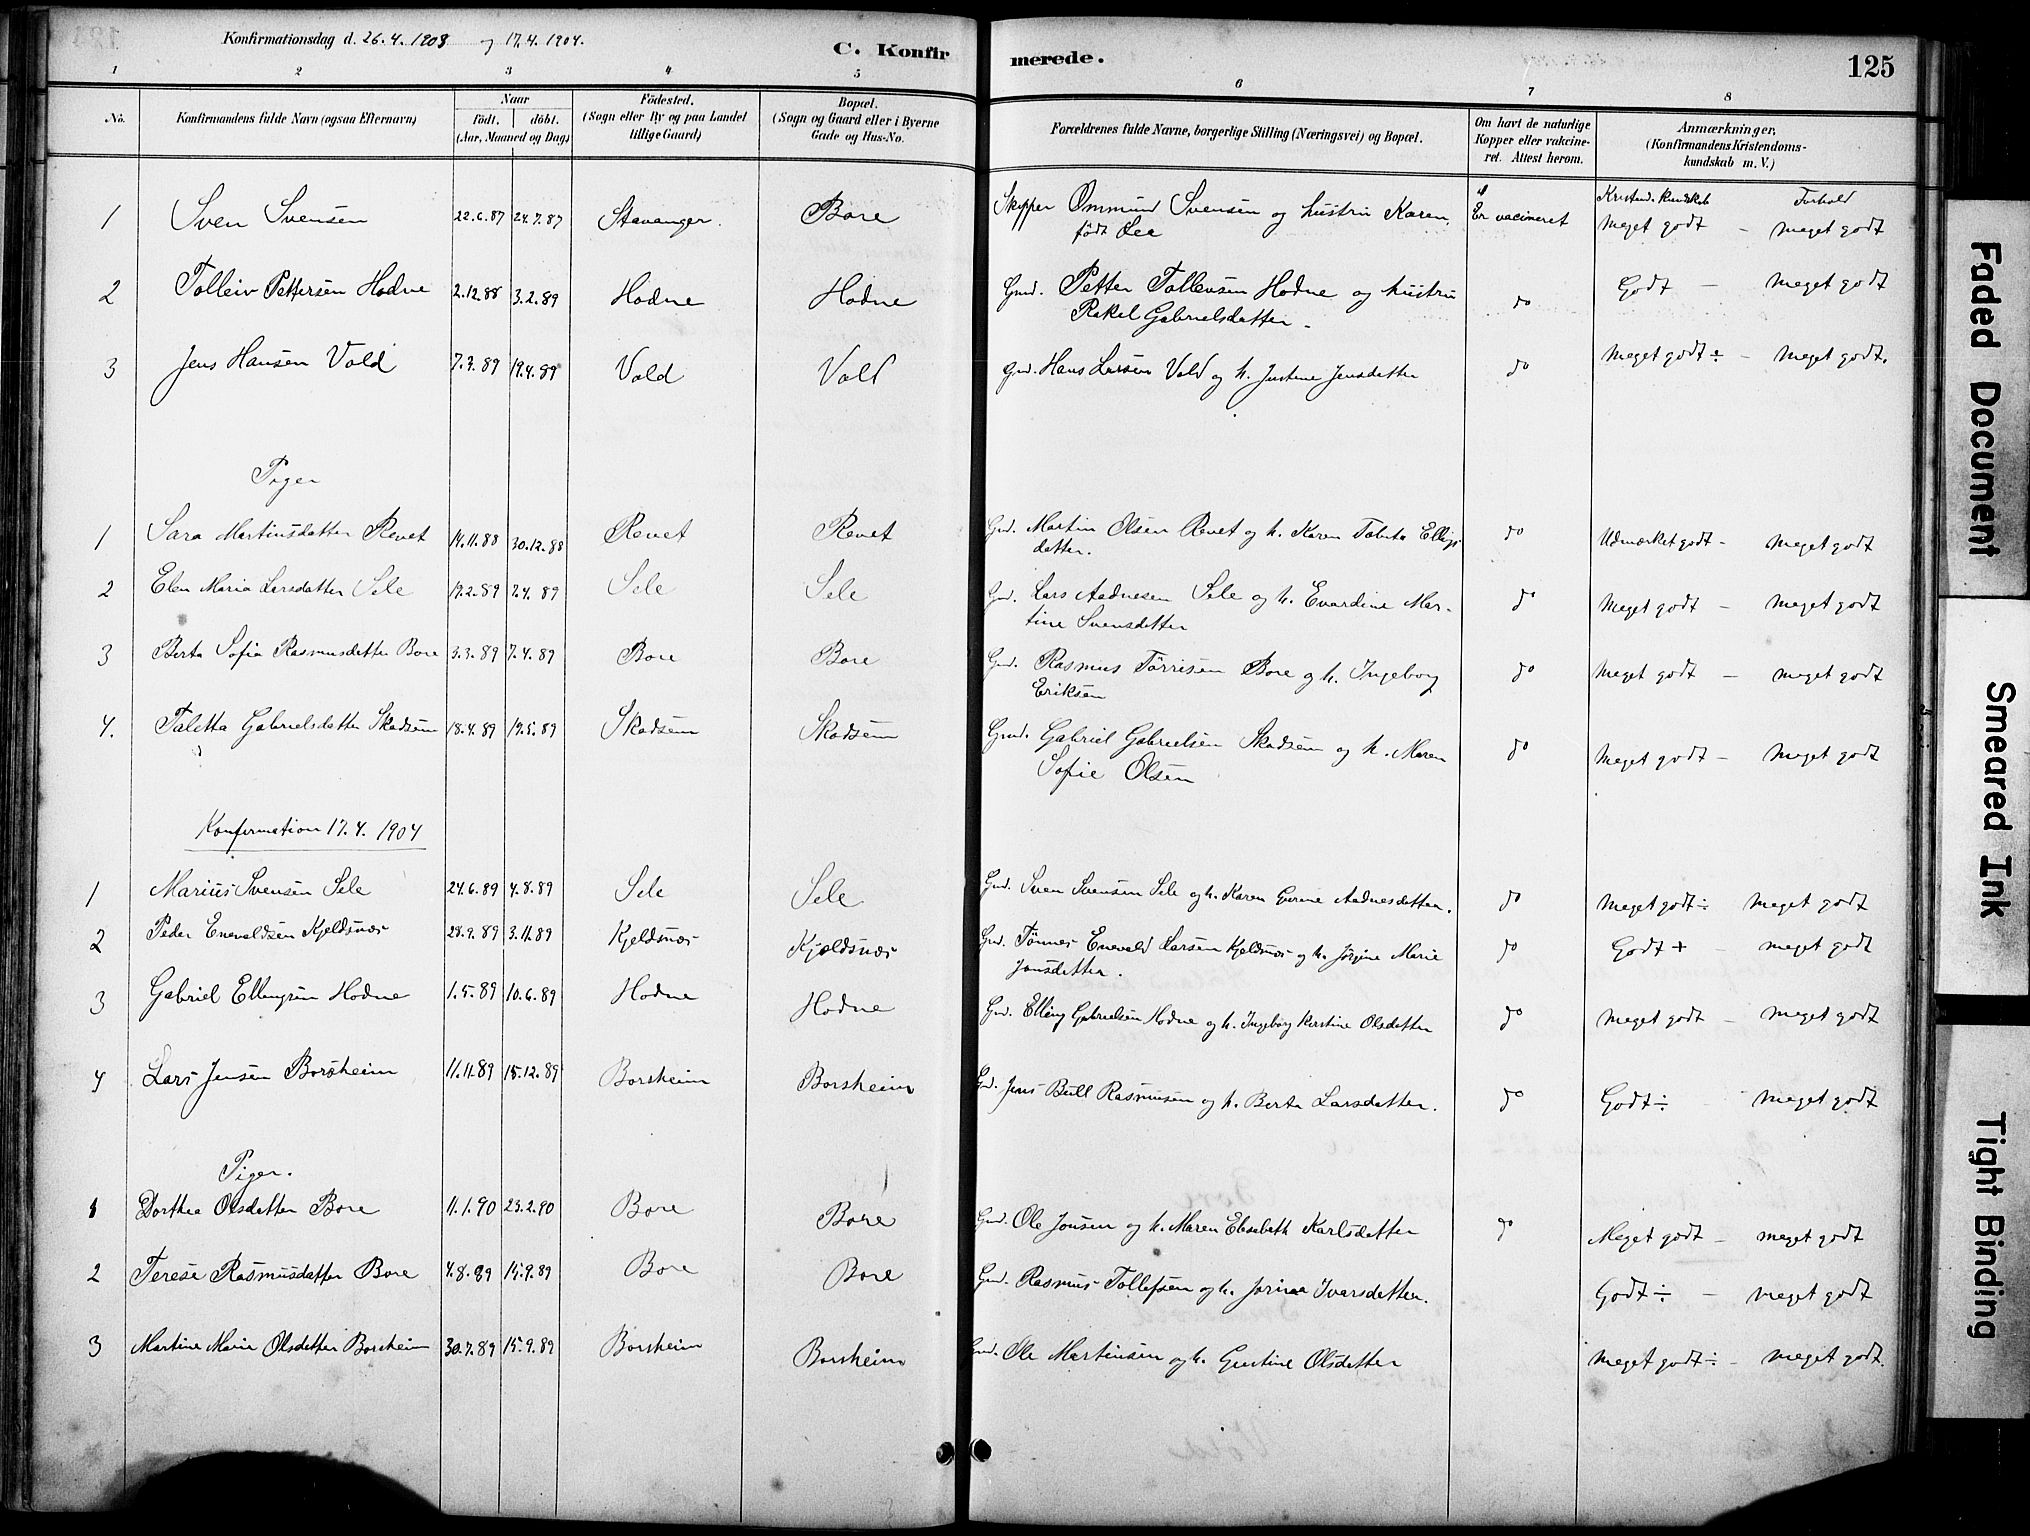 Konfirmationsdag d. 26.4.1903 og 17.4.1904.
C. Konfirmerede.
125
1 2 3 4 5 6 7 8
No.
Konfirmandens fulde Navn (ogsaa Efternavn)
Naar
födt. döbt.
(Aar, Maaned og Dag)
Födested.
(Sogn eller By og paa Landet
tillige Gaard)
Bopæl.
(Sogn og Gaard eller i Byerne
Gade og Hus-No.
Forældrenes fulde Navne, borgerlige Stilling (Næringsvei) og Bopæl.
Om havt de naturlige
Kopper eller vakcine-
ret. Attest herom.
Anmærkninger,
(Konfirmandens Kristendoms-
kundskab m. V.)
Kristend. kundskab Forhold
1 Sven Svensen 22.6.87 24.7.87 Stavanger. Bore Skipper Ommund Svensen og hustru Karen, Er vacineret Meget godt - meget godt
født Lea
2 Tolleiv Pettersen Hodne 2.12.88 3.2.89 Hodne Hodne Gmd. Petter Tollevsen Hodne og hustru do Godt - meget godt
Rakel Gabrielsdatter.
3 Jens Hansen Vold 7.3.89 19.4.89 Vold Vold Gmd. Hans Larsen Vold og h. Justine Jensdatter do Meget godt ÷ - Meget godt.
Piger
1 Sara Martinsdatter Revet 14.11.88 30.12.88 Revet Revet Gmd. Martin Olsen Revet og h. Karen Tabita Ellings do Udmærket godt - meget godt
datter.
2 Elen Maria Larsdatter Sele 19.2.89 7.4.89 Sele Sele Gmd. Lars Aadnesen Sele og h. Evardine Mar- do Meget godt - meget godt
tine Svensdatter
3 Berta Sofia Rasmusdatter Bore 3.3.89 7.4.89 Bore Bore Gmd. Rasmus Tørrisen Bore og h. Ingeborg do Meget godt - meget godt
Eriksen
4. Taletta Gabrielsdatter Skadsem 18.4.89 19.5.89 Skadsem Skadsem Gmd. Gabriel Gabrielsen Skadsem og h. Maren do Meget godt - Meget godt
Sofie Olsen
Konfirmation 17.4.1904
1 Marius Svensen Sele 24.6.89 4.8.89 Sele Sele Gmd. Sven Svensen Sele og h. Karen Gurine Aadnesdatter. do Meget godt ÷ Meget godt
2 Peder Enevaldsen Kjeldsnæs 28.9.89 3.11.89 Kjeldsnæs Kjældsnæs Gmd. Tønnes Enevald Larsen Kjeldsnæs og h. Jørgine Marie do Godt + - meget godt
Jonsdatter.
3 Gabriel Ellingsen Hodne 1.5.89 10.6.89 Hodne Hodne Gmd. Elling Gabrielsen Hodne og h. Ingeborg Kerstine Olsdatter do Meget godt - Meget godt
4 Lars Jensen Borsheim 11.11.89 15.12.89 Borsheim Borsheim Gmd. Jens Bull Rasmusen og h. Berta Larsdatter. do Godt ÷ - Meget godt
Piger.
1 Dorthea Olsdatter Bore 11.1.90 23.2.90 Bore Bore Gmd. Ole Jonsen og h. Maren Elisabeth Karlsdatter do Meget godt - meget godt
2 Terese Rasmusdatter Bore 4.8.89 15.9.89 Bore Bore Gmd. Rasmus Tollefsen og h. Jorina Ivarsdatter. Godt ÷ - meget godt
3 Martine Marie Olsdatter Borsheim 30.7.89 15.9.89 Borsheim Borsheim Gmd. Ole Martinsen og h. Gustine Olsdatter Meget godt ÷ - meget godt.
Faded Document
Smeared Ink
Tight Binding